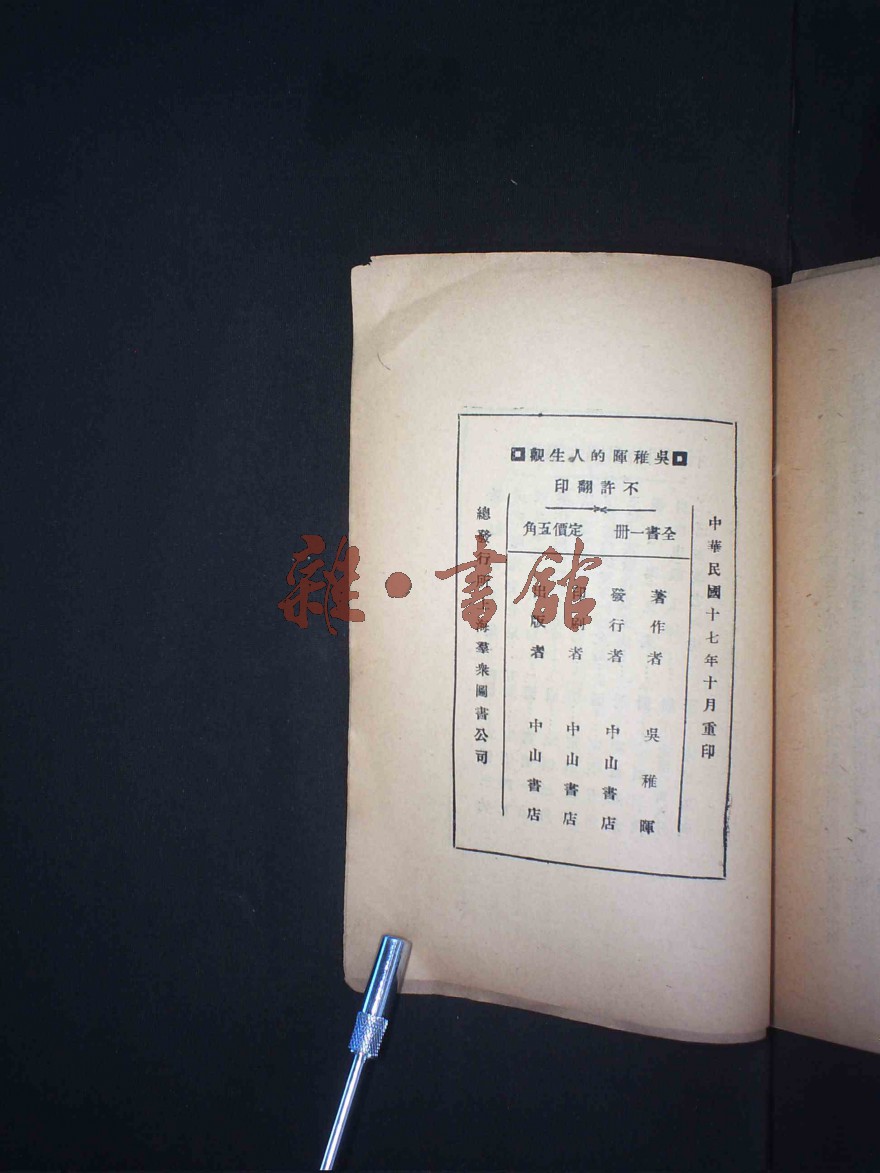 吳稚暉的人生觀
不許翻印
全書一冊 定價五角
中華民國十七年十月重印
著作者 吳稚暉
發行者 中山書店
印刷者 中山書店
出版者 中山書店
總發行所上海羣衆圖書公司
雜·書館